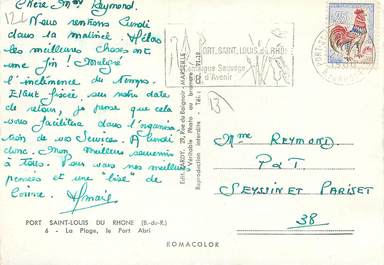 Chère Mme Reymond.
Nous rentrons Lundi
dans la matinée. Hélas
les meilleures choses ont
une fin ! Malgré
l'inclémence du Temps.
Etant fixée sur notre date
de retour, je pense que cela
vous facilitera dans l'organisa
tion de vos Services. A lundi
donc. Mon meilleur souvenir
à tous. Pour vous mes meilleures
pensées et une "bise" de
Corinne.
PORT SAINT-LOUIS DU RHONE (B.-du-R.)
6 - La Plage, le Port Abri
ROMACOLOR
29, Rue du Baignoir - MARSEILLE
Véritable Photo au bromure
Reproduction interdite - Tél. :
PORT SAINT LOUIS DU RHO
Plague Sauvage
d'Avenir
13
Mme REYMOND
P&T
SEYSSIN et PARISET
38